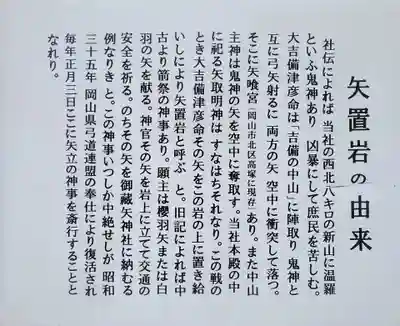 矢置岩の由来
社伝によれば 当社の西北八キロの新山に温羅
といふ鬼神あり 凶暴にして庶民を苦しむ。
大吉備津彦命は「吉備の中山」に陣取り 鬼神と
互に弓矢射るに 両方の矢 空中に衝突して落つ。
そこに矢喰宮(岡山市北区高塚に現存)あり。また中山
主神は鬼神の矢を空中に奪取す。当社本殿の中
に祀る矢取明神は すなはちそれなり。この戦の
とき大吉備津彦命その矢をこの岩の上に置き給
いしにより矢置岩と呼ぶ と。旧記によれば中
古より箭祭の神事あり。願主は櫻羽矢または白
羽の矢を献る。神官その矢を岩上に立てて交通の
安全を祈る。のちその矢を御蔵矢神社に納むる
例なりき と。この神事いつしか中絶せしが 昭和
三十五年 岡山県弓道連盟の奉仕により復活され
毎年正月三日ここに矢立の神事を斎行することと
なれり。